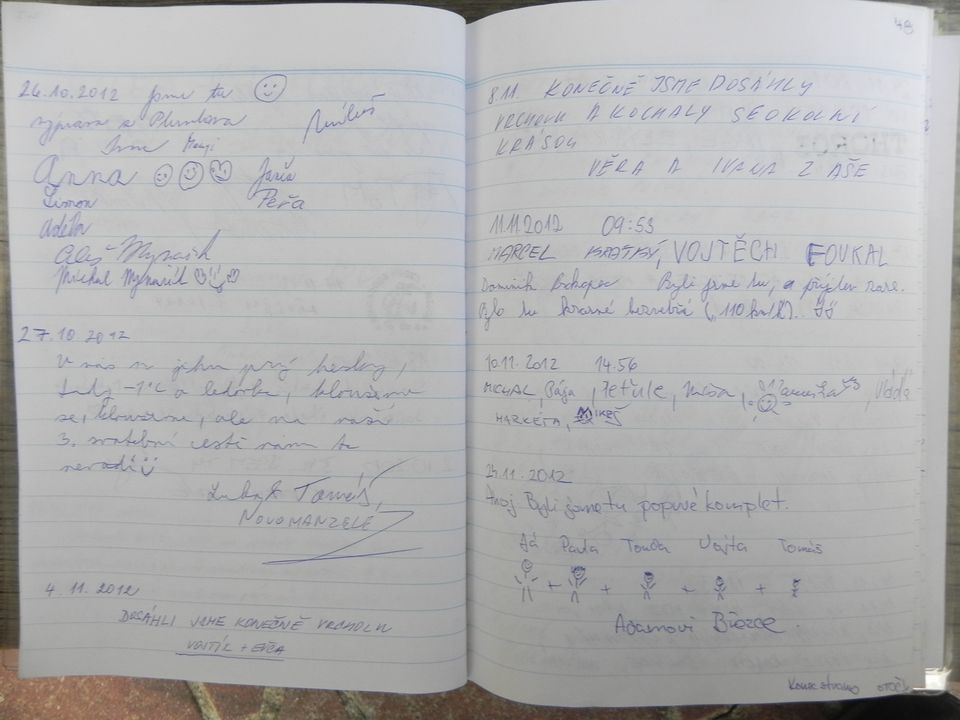 26.10.2012 jsme tu
výprava z Plumlova
Jsme
Anna Jarča
Šimon Péťa
Adéla
Aleš Mynařík
Michal Mynařík
27.10 2012
V nás na jihu prý hezky,
tady -1°C a ledovka, kloužeme
se, kloužeme, ale na naší
3. svatební cestě nám to
nevadí
Tomáš,
NOVOMANŽELÉ
4. 11. 2012
DOSÁHLI JSME KONEČNĚ VRCHOLU
VOJTÍK +
48
8.11. KONEČNĚ JSME DOSÁHLY
VRCHOLU A KOCHALY SE OKOLNÍ
KRÁSOU
VĚRA A IVANA Z AŠE
11.11.2012 09:53
MARCEL KRÁTKÝ, VOJTĚCH FOUKAL
Dominik Byli jsme tu, a přijdem zase.
Bylo tu krásné bezvětří (110 km/h).
10.11.2012 14:56
MICHAL, Pája, Míša,
MARKÉTA, MIKEŠ
11. 2012
Ahoj. Byli jsme tu poprvé komplet.
Já Pavla Tonda Vojta Tomáš
+ + + +
Adamovi Březce.
Konec strany otoč